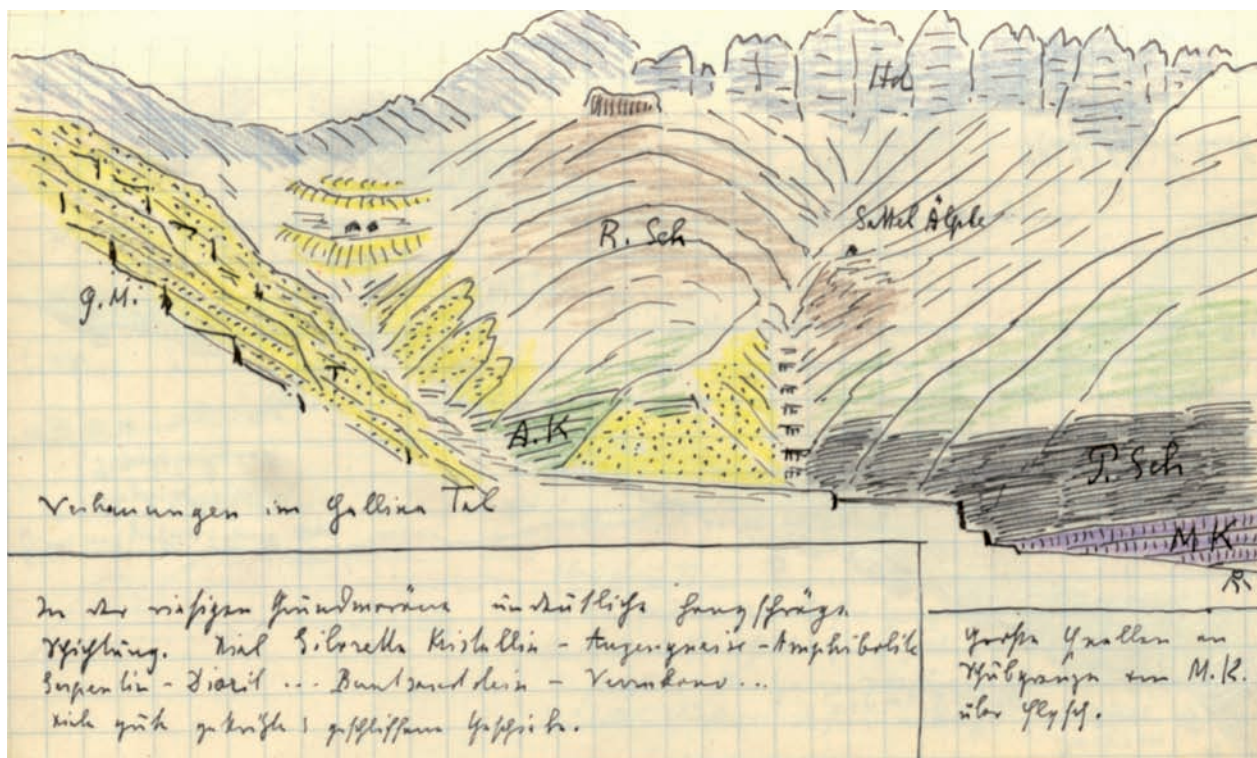 Hd
Sattel Älpele
R. Sch
G. M.
T
A. K
P. Sch
M K
Verbauungen im Gallina Tal
In der riesigen Grundmoräne undeutliche hangschräge
Schichtung. Viel Silvretta Kristallin - Augengneise - Amphibolite
Serpentin - Diorit ... Buntsandstein - Verrukano ...
viele gute gekritzte geschliffene Geschiebe.
Große Quellen an
Schubgrenze von M.K.
über Flysch.